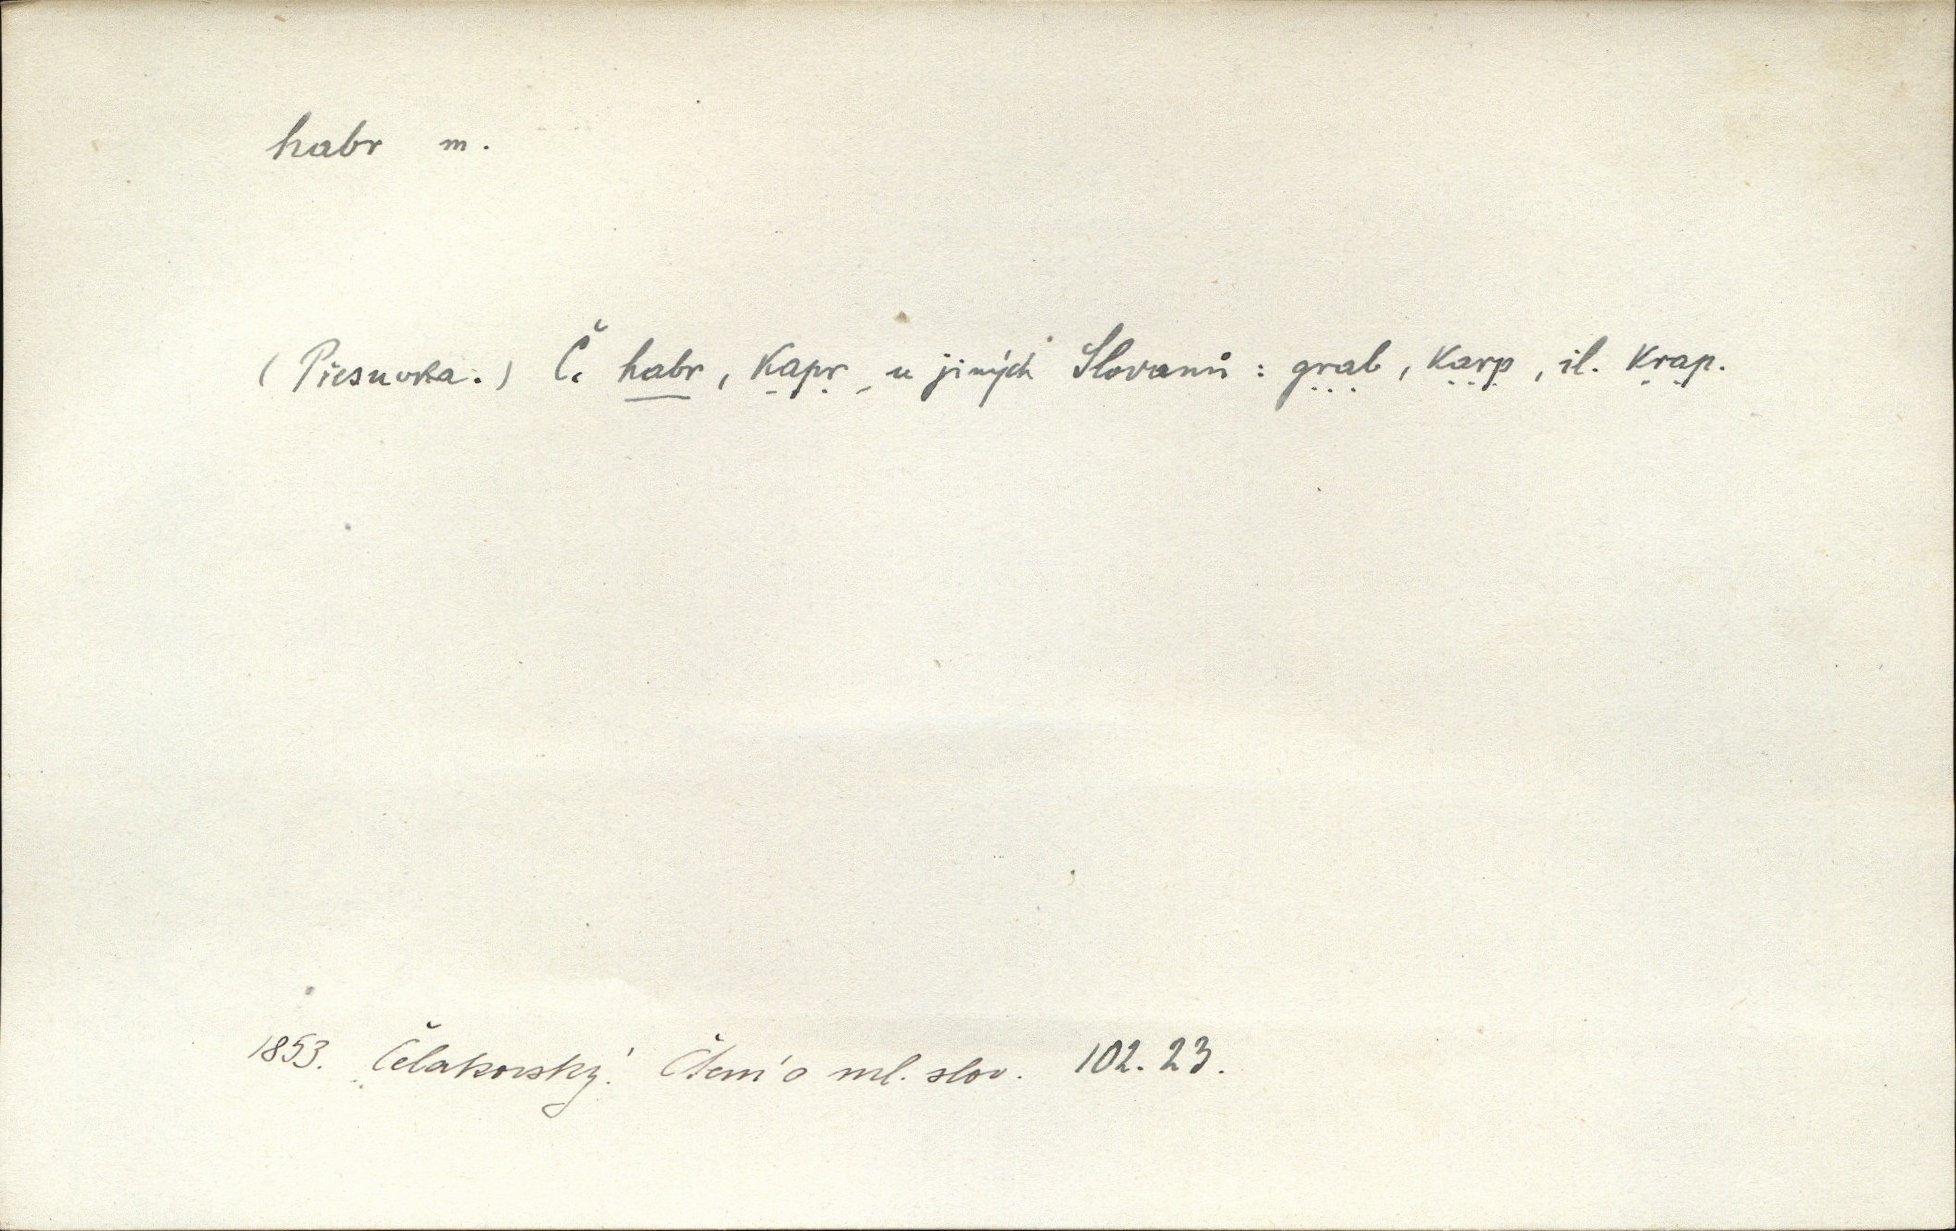 habr m.
(Přesuvka.) Č. habr, kapr, u jiných Slovanů: grab, karp, il. krap.
1853. Čelakovský. Čtení o ml. slov. 102.23.